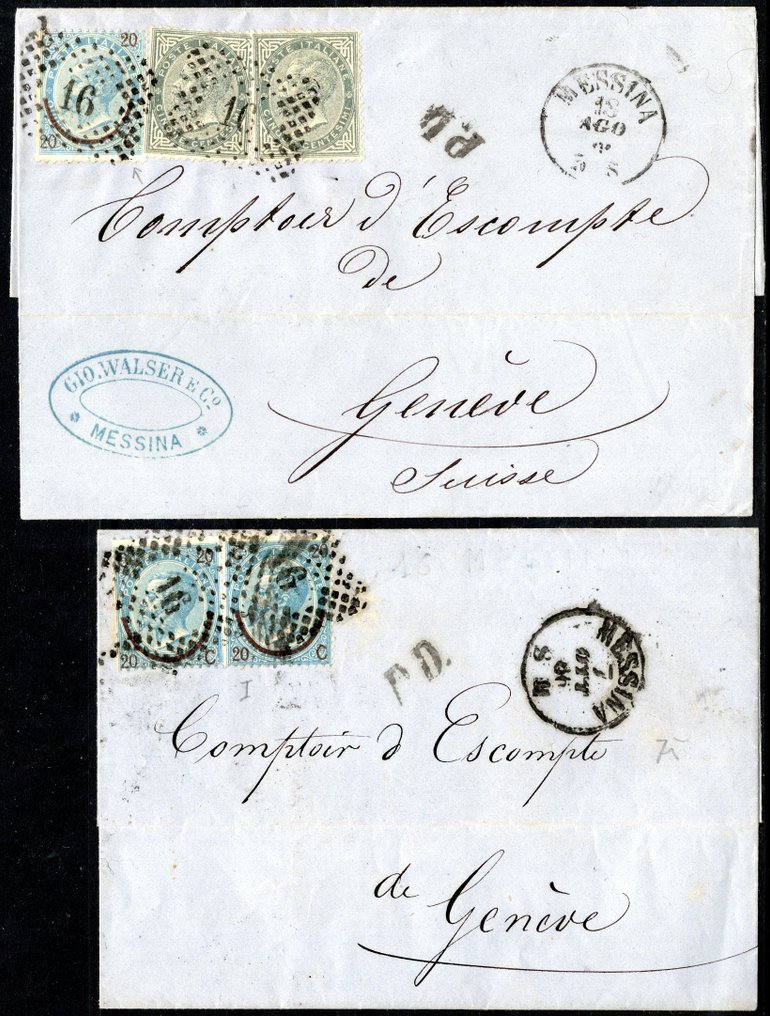 C 20
20
16
POSTE ITALIANE
11
POSTE ITALIANE
P.D.
MESSINA
18
AGO
Comptoir d'Escompte
de
Genève
Suisse
GIO. WALSER E Co.
MESSINA
20
16
20 C
20
16
20 C
P.D.
MESSINA
1
OTT
66
S M
I
Comptoir d Escompte
de
Genève